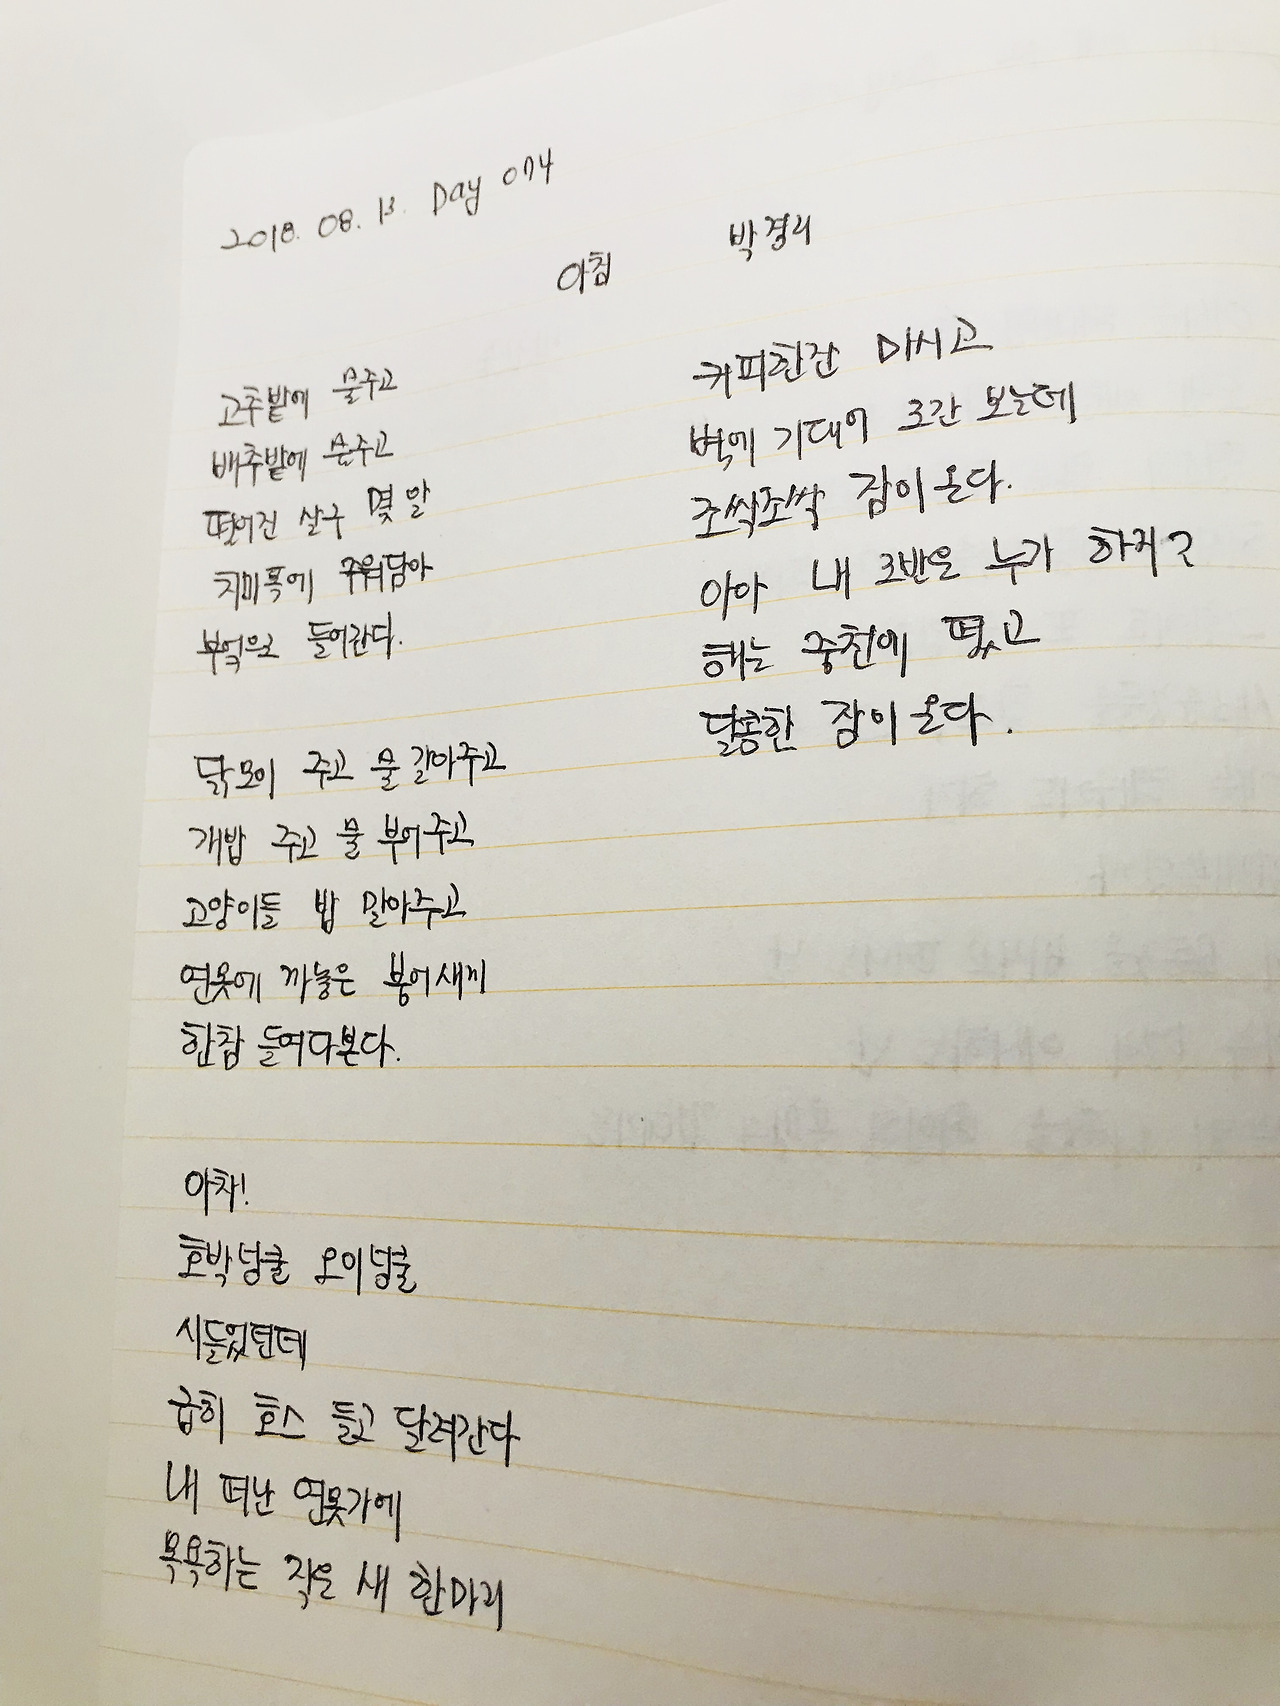 2018. 08. 13. Day 074
아침 박경리
고추밭에 물주고
배추밭에 물주고
떨어진 살구 몇 알
치마폭에 주워담아
부엌으로 들어간다.
닭모이 주고 물 갈아주고
개밥 주고 물 부어주고
고양이들 밥 말아주고
연못에 까놓은 붕어새끼
한참 들여다본다.
아차!
호박넝쿨 오이넝쿨
시들었던데
급히 호스 들고 달려간다
내 떠난 연못가에
목욕하는 작은 새 한마리
커피한잔 마시고
벽에 기대어 조간 보는데
조싹조싹 잠이 온다.
아아 내 조반은 누가 하지?
해는 중천에 떴고
달콩한 잠이 온다.